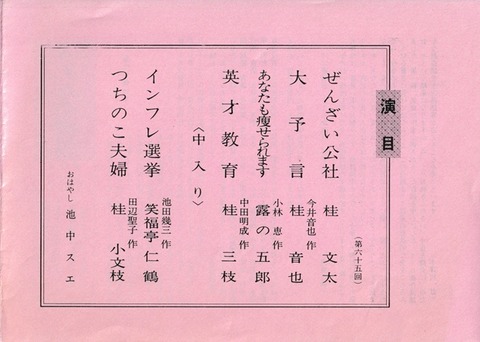 演目
（第六十五回）
ぜんざい公社　桂　文太
今井音也 作
大予言　桂　音也
小林　恵 作
あなたも痩せられます　露の五郎
中田明成 作
英才教育　桂　三枝
〈中入り〉
池田幾三 作
インフレ選挙　笑福亭仁鶴
田辺聖子 作
つちのこ夫婦　桂　小文枝
おはやし　池中スエ